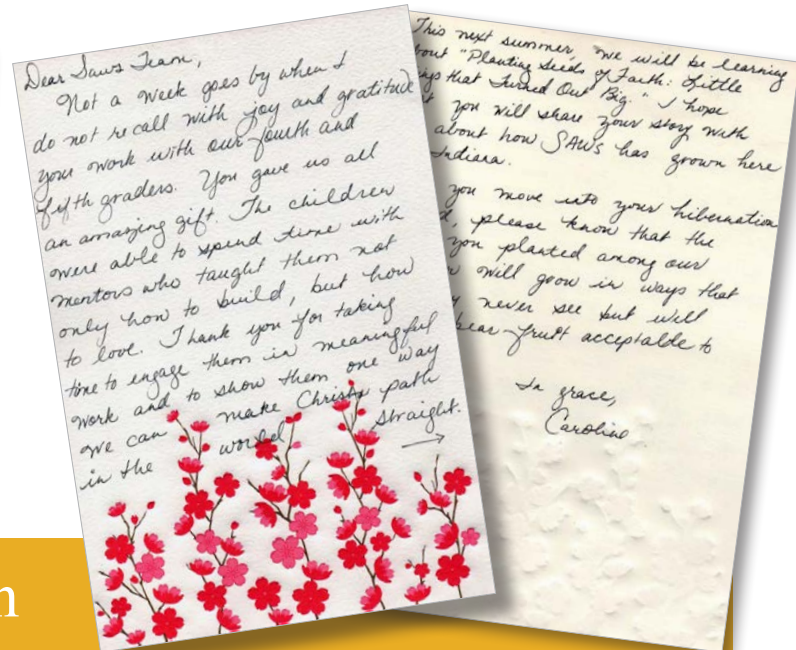 Dear Saws Team,
Not a week goes by when I
do not recall with joy and gratitude
your work with our fourth and
fifth graders. You gave us all
an amazing gift. The children
were able to spend time with
mentors who taught them not
only how to build, but how
to love. Thank you for taking
time to engage them in meaningful
work and to show them one way
we can make Christ's path
in the world straight.
This next summer, we will be learning
bout "Planting Seeds of Faith: Little
ngs that Turned Out Big." I hope
t you will share your story with
about how SAWs has grown here
Indiana.
you move into your hibernation
d, please know that the
you planted among our
will grow in ways that
y never see but will
bear fruit acceptable to
In grace,
Caroline
n